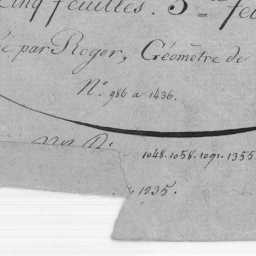 Cinq feuilles. 3.me feu
é par Roger, Géomètre de
N.os 986 a 1436.
1048. 1058. 1091. 1355
1235.